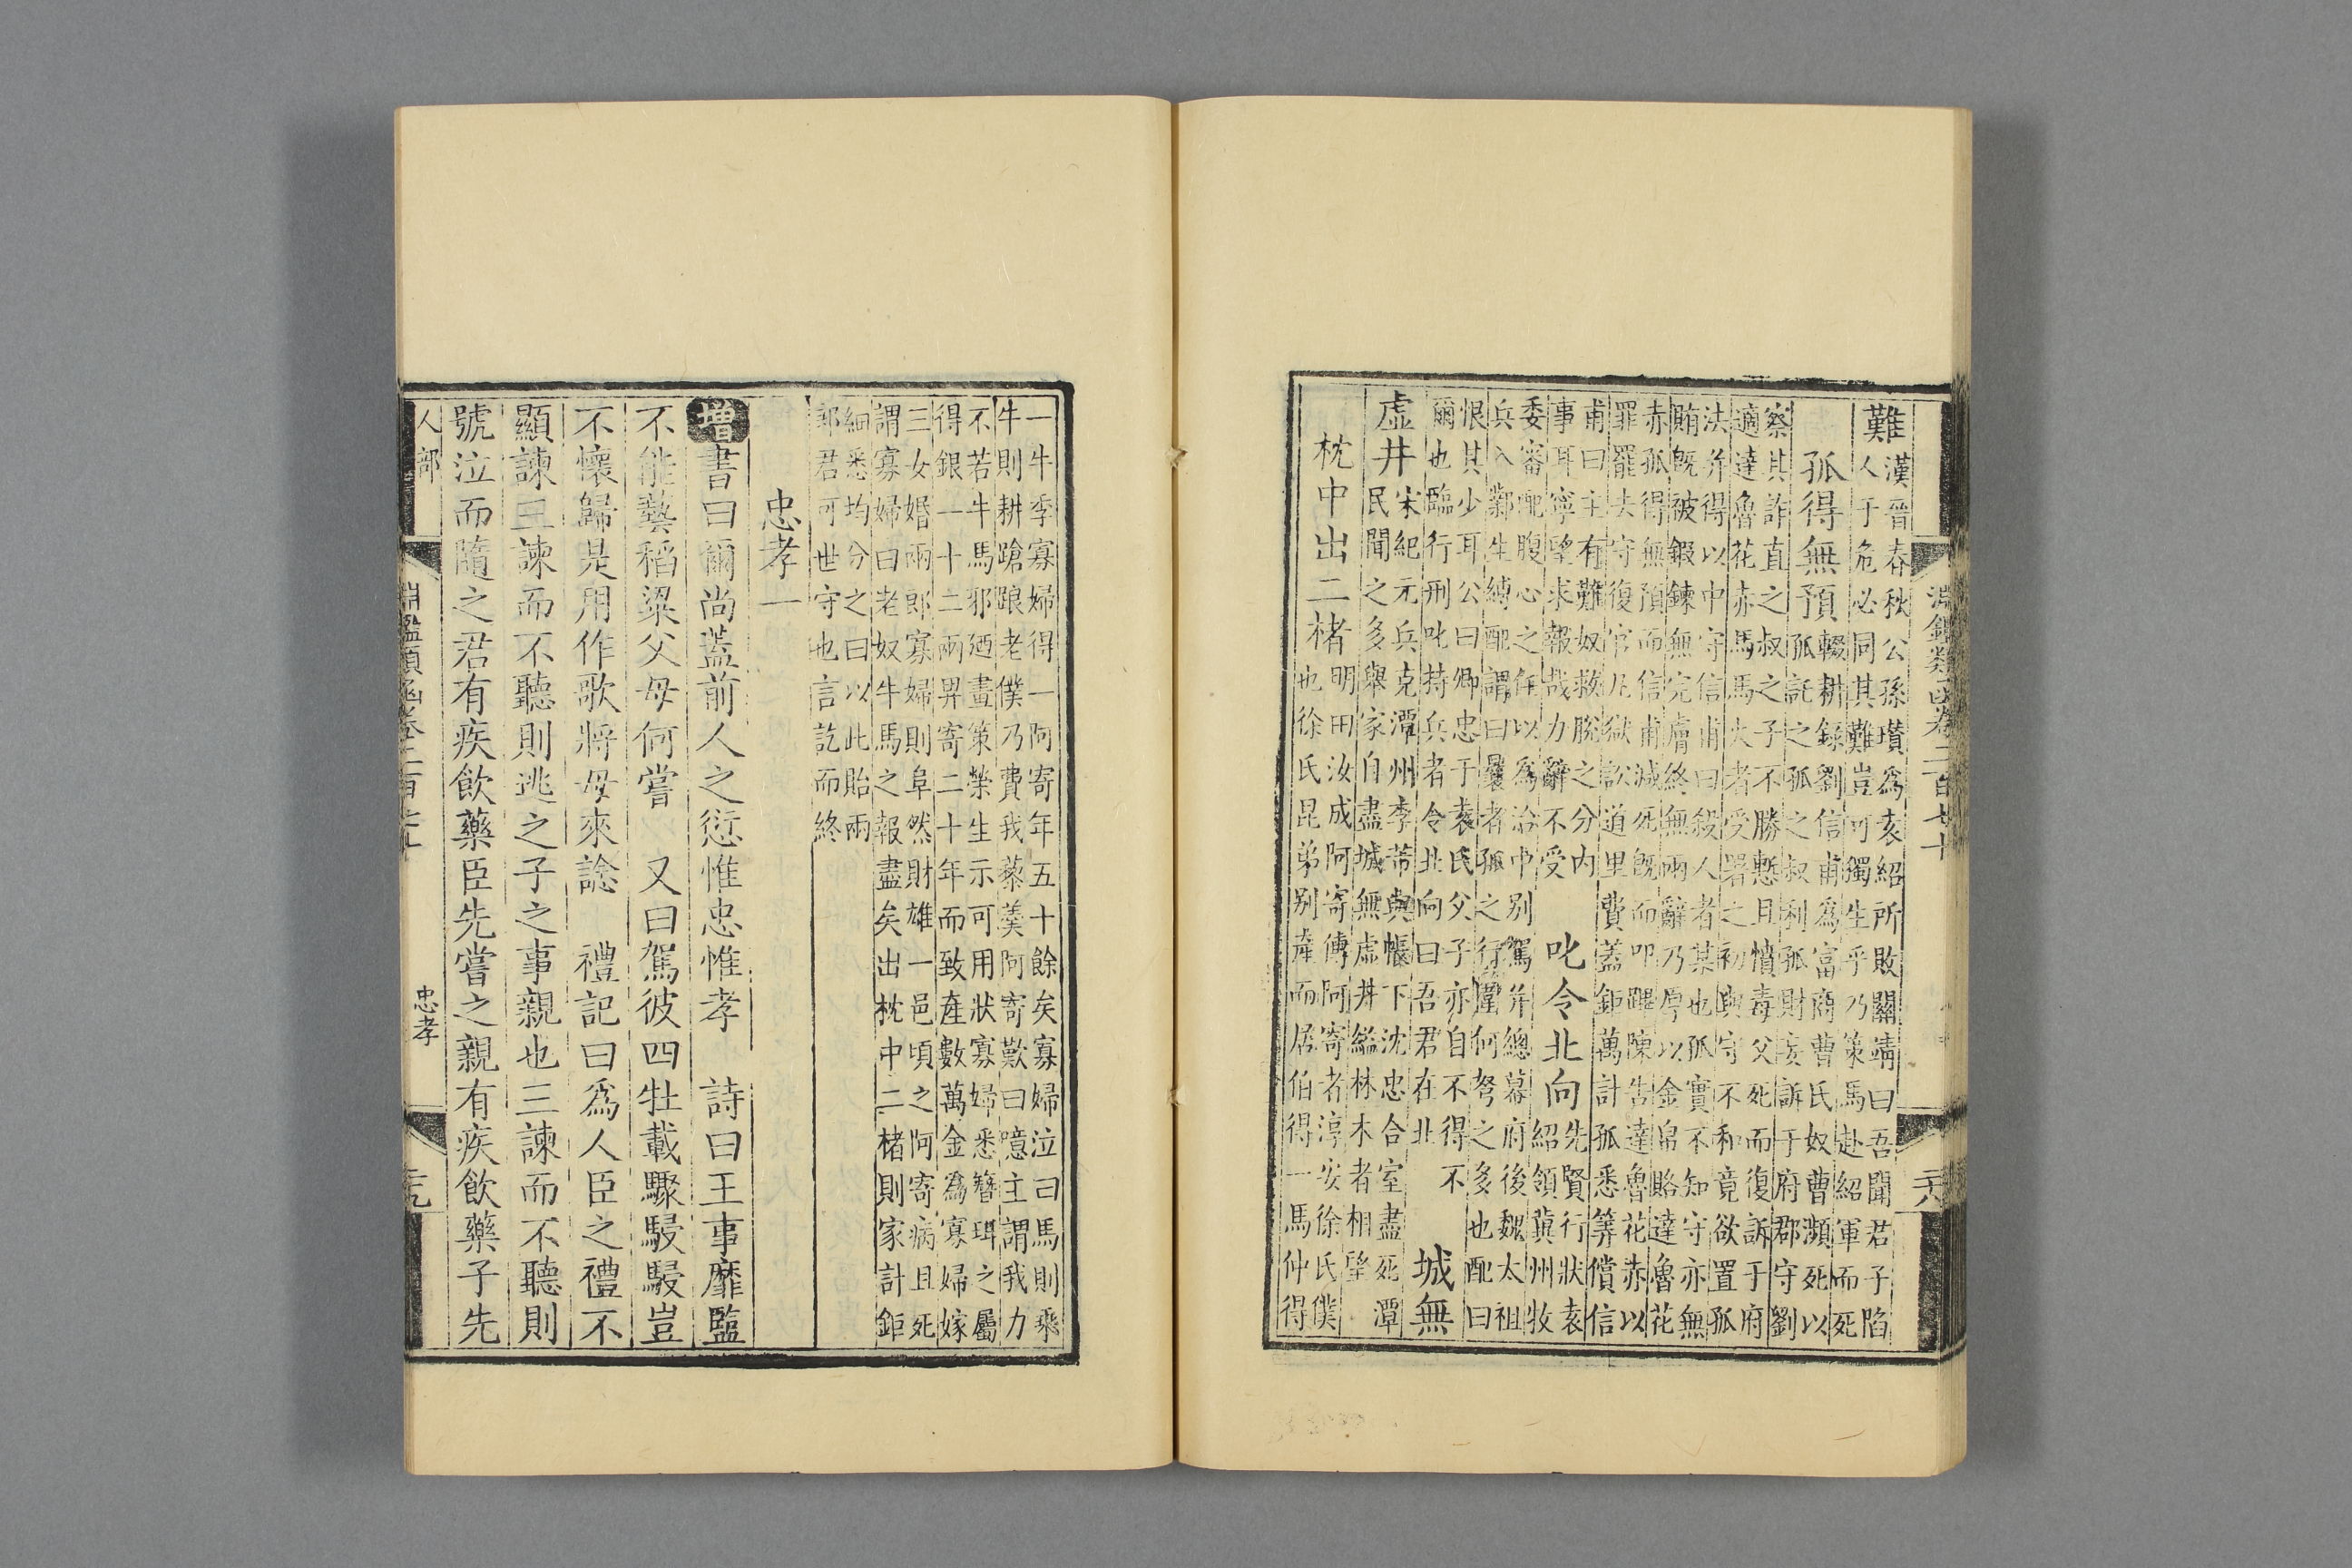 淵鑑類函卷二百七十
二八
難漢晉春秋公孫瓚為袁紹所敗關靖曰吾聞君子陷
人于危必同其難豈可獨生乎乃策馬赴紹軍而死
孤得無預輟耕錄劉信甫為富商曹氏奴曹瀕死以
孤託之孤之叔利孤財妄訴于府郡守劉
察其詐直之叔之子不勝慙且憤毒父死而復訴于府
適達魯花赤馬馬大者受署之初與守不和竟欲置孤
法并得以中守信甫曰殺人者某也孤實不知守亦無
賄既被鍛鍊無完膚終無兩辭乃厚以金帛賂達魯花
赤孤得無預而信甫減死既而叩蹕陳告達魯花赤以
罪罷去守復官凡獄訟道里費蓋鉅萬計孤悉筭償信
甫曰主有難奴救脫之分内
事耳寧望求報哉力辭不受
叱令北向先賢行狀袁
紹領冀州牧
委審配腹心之任以為治中別駕并總幕府後魏太祖
兵入鄴生縛配謂曰曩者孤之行圍何弩之多也配曰
恨其少耳公曰卿忠于袁氏父子亦自不得不
爾也臨行刑叱持兵者令北向曰吾君在北
城無
虛井宋紀元兵克潭州李芾與帳下沈忠合室盡死潭
民聞之多舉家自盡城無虛井縊林木者相望
枕中出二楮明田汝成阿寄傳阿寄者淳安徐氏僕
也徐氏昆弟别產而居伯得一馬仲得
一牛季寡婦得一阿寄年五十餘矣寡婦泣曰馬則乘
牛則耕蹌踉老僕乃費我藜羹阿寄歎曰噫主謂我力
不若牛馬邪廼畫策榮生示可用狀寡婦悉簪珥之屬
得銀一十二兩畀寄二十年而致產數萬金為寡婦嫁
三女婚兩郎寡婦則阜然財雄一邑頃之阿寄病且死
謂寡婦曰老奴牛馬之報盡矣出枕中二楮則家計鉅
細悉均分之曰以此貽兩
郎君可世守也言訖而終
忠孝一
增書曰爾尚蓋前人之愆惟忠惟孝　詩曰王事靡盬
不能蓺稻粱父母何嘗　又曰駕彼四牡載驟駸駸豈
不懷歸是用作歌將母來諗　禮記曰為人臣之禮不
顯諫三諫而不聽則逃之子之事親也三諫而不聽則
號泣而隨之君有疾飲藥臣先嘗之親有疾飲藥子先
人部
淵鑑類函卷二百七十
忠孝
二九